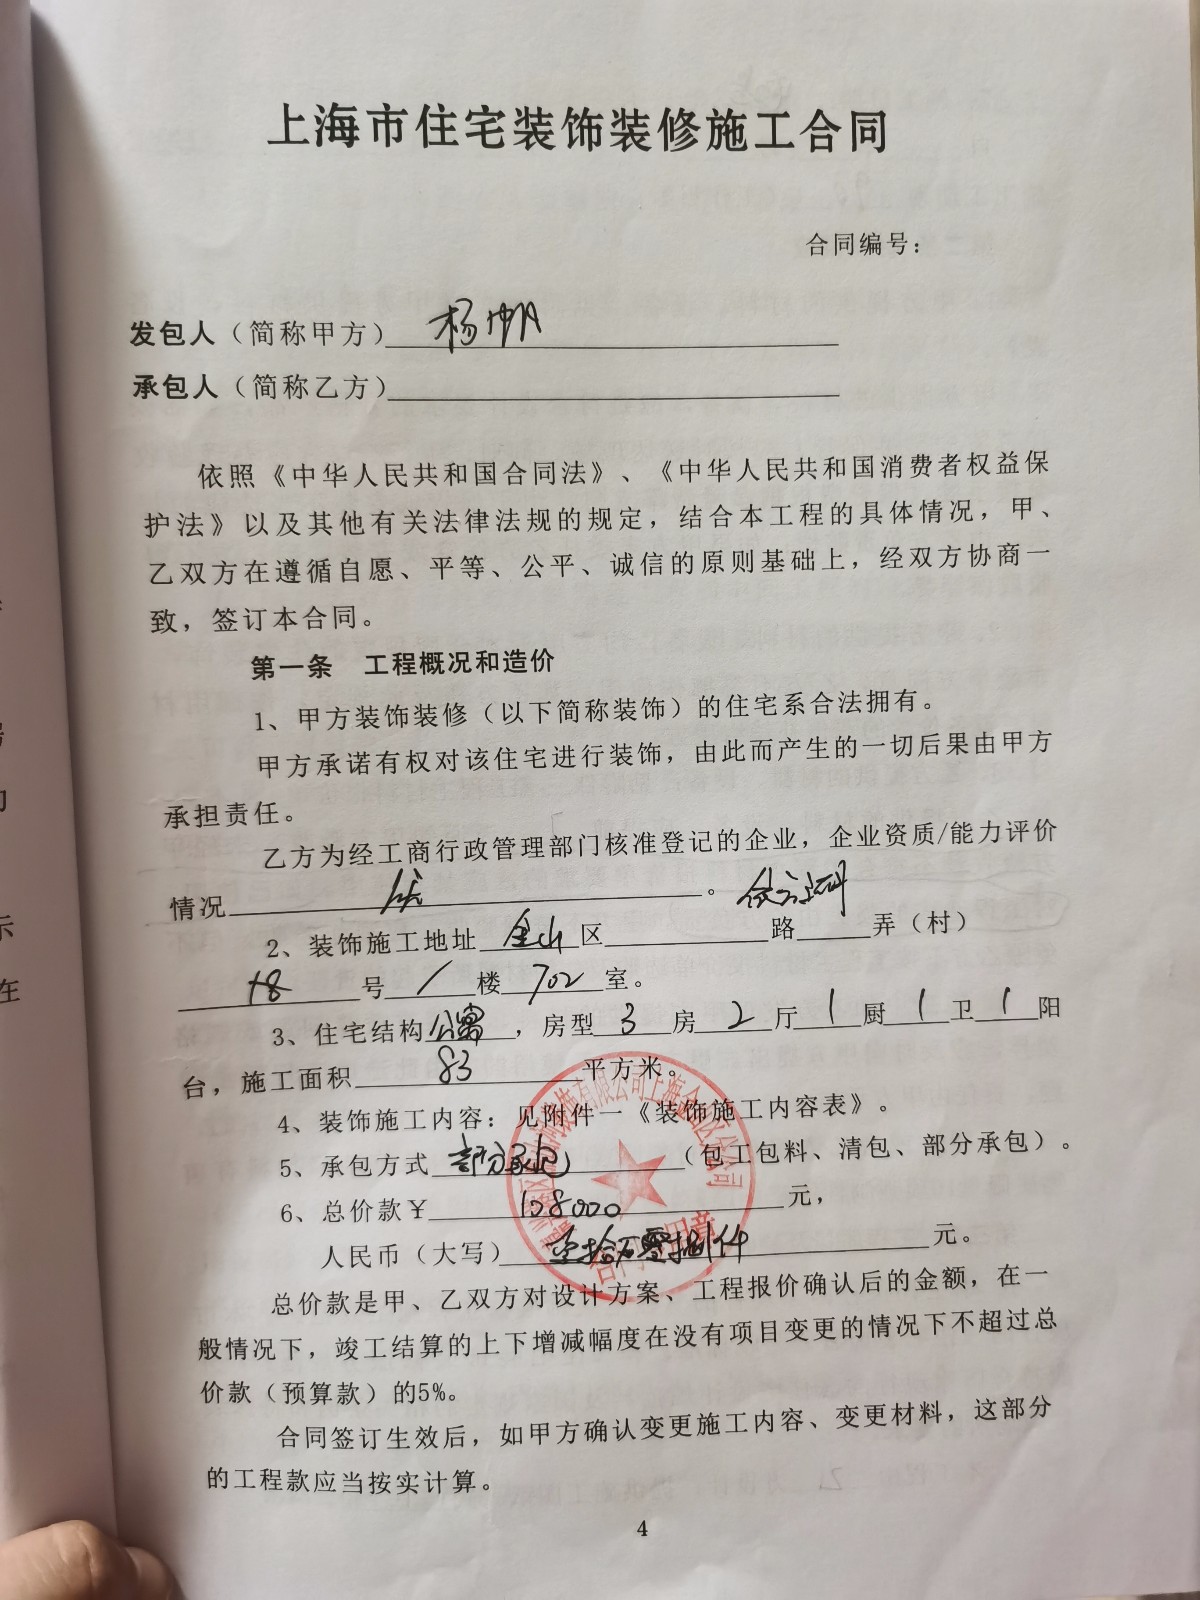 上海市住宅装饰装修施工合同
合同编号：
发包人（简称甲方）杨帆
承包人（简称乙方）
依照《中华人民共和国合同法》、《中华人民共和国消费者权益保
护法》以及其他有关法律法规的规定，结合本工程的具体情况，甲、
乙双方在遵循自愿、平等、公平、诚信的原则基础上，经双方协商一
致，签订本合同。
第一条 工程概况和造价
1、甲方装饰装修（以下简称装饰）的住宅系合法拥有。
甲方承诺有权对该住宅进行装饰，由此而产生的一切后果由甲方
承担责任。
乙方为经工商行政管理部门核准登记的企业，企业资质/能力评价
情况 优 。
2、装饰施工地址 金山 区 路 弄（村）
18 号 / 楼 702 室。
3、住宅结构 公寓 ，房型 3 房 2 厅 1 厨 1 卫 1 阳
台，施工面积 83 平方米。
4、装饰施工内容：见附件一《装饰施工内容表》。
5、承包方式 部分承包 （包工包料、清包、部分承包）。
6、总价款￥ 108000 元，
人民币（大写） 壹拾万零捌仟 元。
总价款是甲、乙双方对设计方案、工程报价确认后的金额，在一
般情况下，竣工结算的上下增减幅度在没有项目变更的情况下不超过总
价款（预算款）的5%。
合同签订生效后，如甲方确认变更施工内容、变更材料，这部分
的工程款应当按实计算。
4